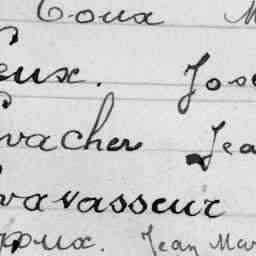 Toux M
eux. Jos
vacher Jea
vavasseur
oux. Jean Mar